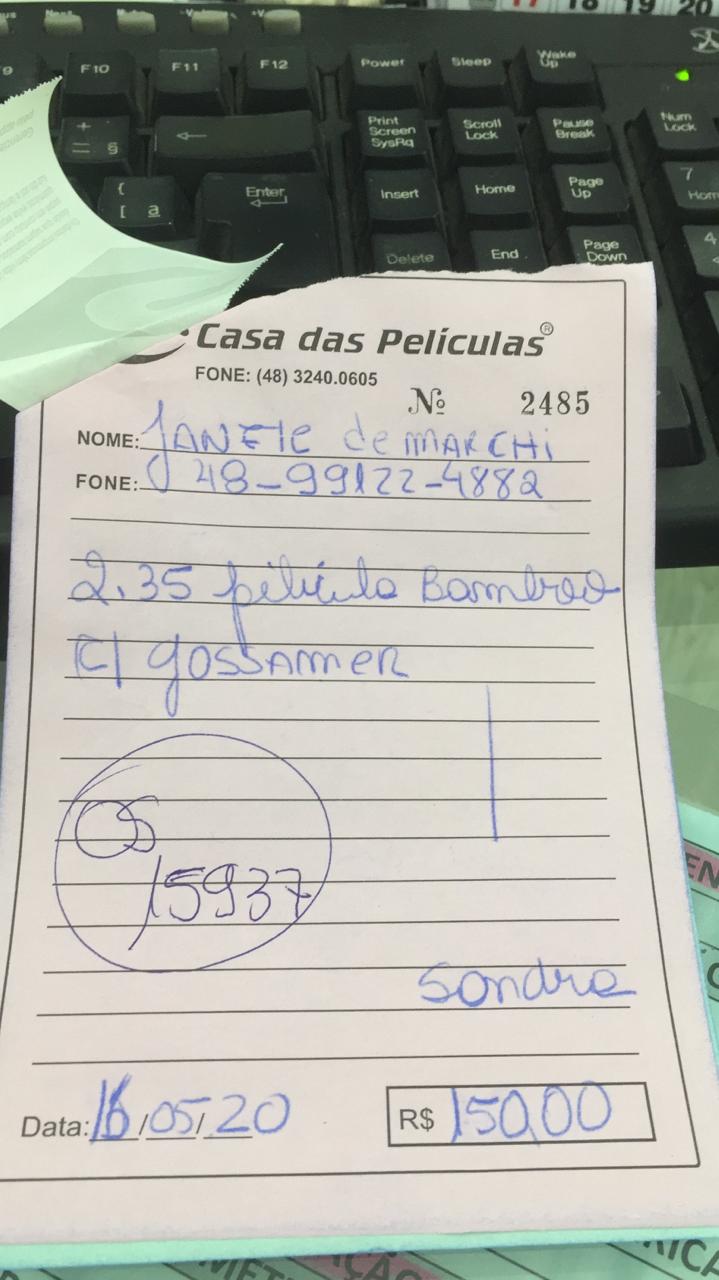 17 18 19 20
F10 F11 F12 Power Sleep Wake Up
Print Screen SysRq Scroll Lock Pause Break Num Lock
+ = §
{ [ a
Enter Insert Home Page Up 7
Delete End Page Down 4
Casa das Películas®
FONE: (48) 3240.0605
Nº 2485
NOME: JANETE de MARCHi
FONE: 48-99122-4882
2.35 pelicula
C/ gossamer
OS
15937
Sandra
Data: 16/05/20 R$ 150,00